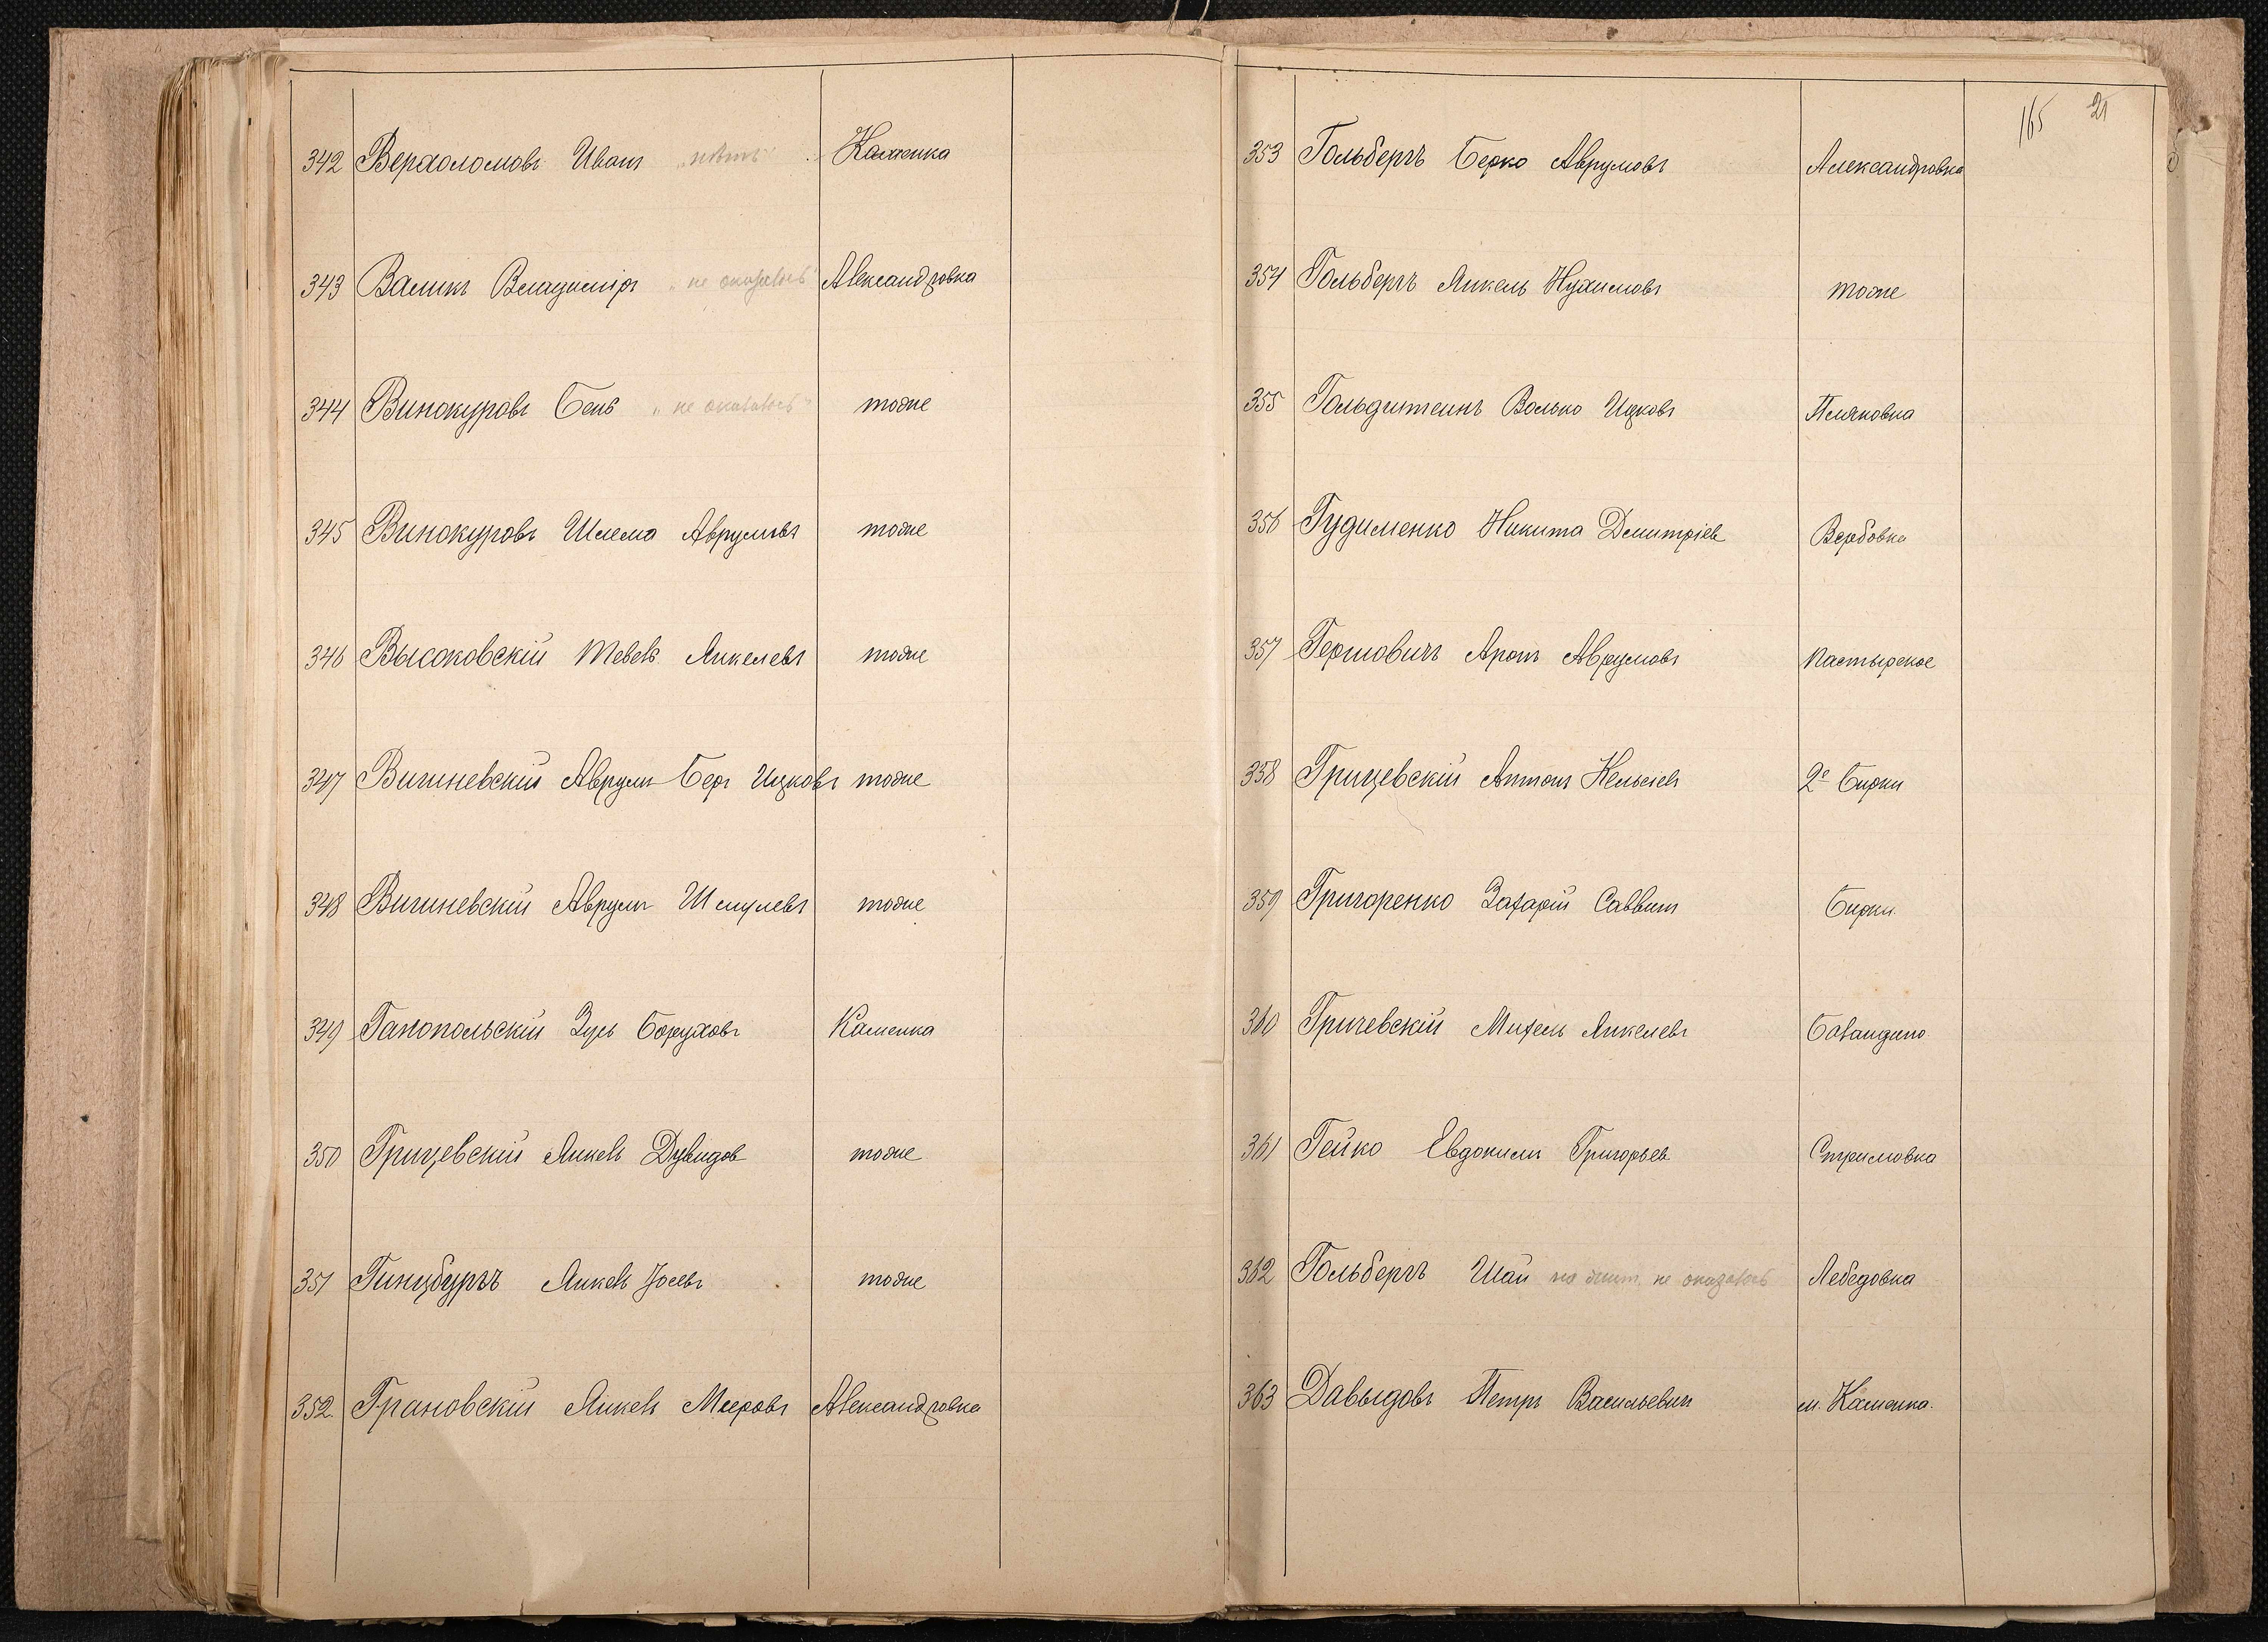 342 Верхоломовъ Иванъ „нѣтъ“ Каменка
343 Валикъ Владиміръ „не оказалось“ Александровка
344 Винокуровъ Бень „не оказалось“ тоже
345 Винокуровъ Шлема Аврумовъ тоже
346 Высоковскій Тевель Янкелевъ тоже
347 Вишневскій Аврумъ Беръ Ицковъ тоже
348 Вишневскій Аврумъ Шмулевъ тоже
349 Ганопольскій Зусь Боруховъ Каменка
350 Грицевскій Янкель Дувидов тоже
351 Гинцбургъ Янкель Іосевъ тоже
352. Грановскій Янкель Мееровъ Александровка
165 21
353 Гольбергъ Берко Аврумовъ Александровка
354 Гольбергъ Янкель Нухимовъ тоже
355 Гольдштеинъ Волько Ицковъ Пляковка
356 Гудименко Никита Дмитріев Вербовка
357 Гершовичъ Аронъ Аврумовъ Пастырское
358 Грицевскій Антонъ Кельсіевъ 2е Бирки
359 Григоренко Захарій Саввинъ Бирки
360 Гричевскій Михель Янкелевъ Баландино
361 Гейко Евдокимъ Григорьев Стримовка
362 Гольбергъ Шаи не оказалось Лебедовка
363 Давыдовъ Петръ Васильевичъ м. Каменка.